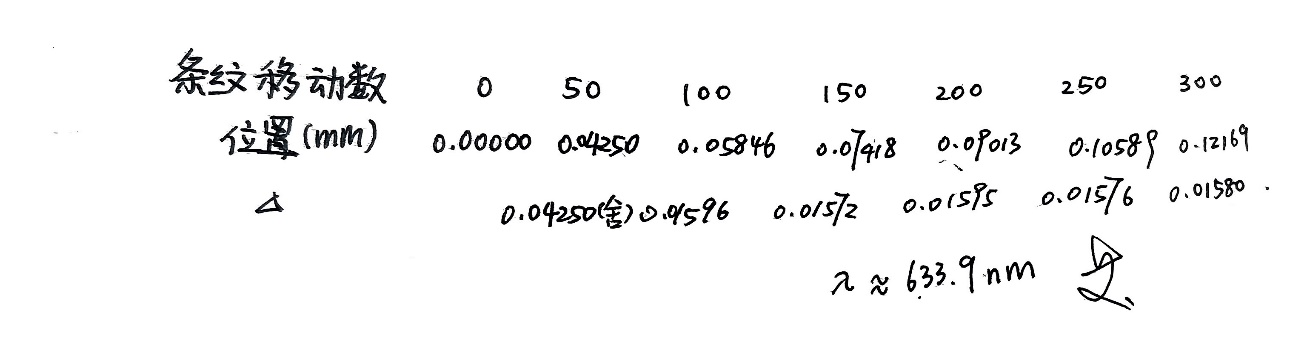 条纹移动数 0 50 100 150 200 250 300
位置(mm) 0.00000 0.04250 0.05846 0.07418 0.09013 0.10589 0.12169
Δ 0.04250(舍) 0.01596 0.01572 0.01595 0.01576 0.01580
λ ≈ 633.9nm